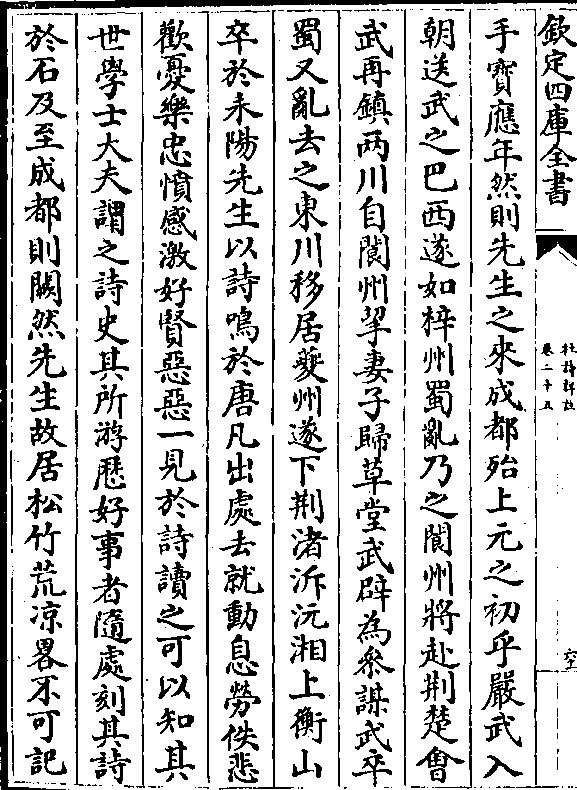 欽定四庫全書
杜詩詳註
卷二十五
手寳應年然則先生之來成都殆上元之初乎嚴武入
朝送武之巴西遂如梓州蜀亂乃之閬州將赴荆楚會
武再鎮两川自閬州挈妻子歸草堂武辟為參謀武卒
蜀又亂去之東川移居夔州遂下荆渚泝沅湘上衡山
卒於耒陽先生以詩鳴於唐凡出處去就動息勞佚悲
歡憂樂忠憤感激好賢惡惡一見於詩讀之可以知其
世學士大夫謂之詩史其所游歴好事者隨處刻其詩
於石及至成都則闕然先生故居松竹荒凉畧不可記